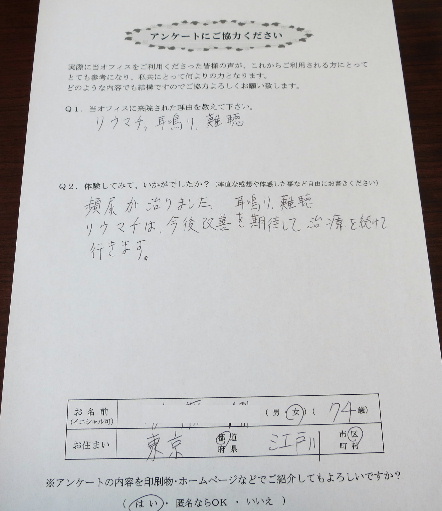 アンケートにご協力ください
実際に当オフィスをご利用くださった皆様の声が、これからご利用される方にとって
とても参考になり、私共にとって何よりの力となります。
どのような内容でも結構ですのでご協力よろしくお願い致します。
Q1. 当オフィスに来院された理由を教えて下さい。
リウマチ, 耳鳴り, 難聴
Q2. 体験してみて、いかがでしたか?(率直な感想や体感した事など自由にお書きください)
頻尿が治りました。 耳鳴り、難聴
リウマチは、今後改善を期待して治療を続けて
行きます。
お名前
(イニシャル可)
(男・女)( 74 歳)
お住まい 東京 都道府県 江戸川 市区町村
※アンケートの内容を印刷物・ホームページなどでご紹介してもよろしいですか?
(はい・匿名ならOK・いいえ)